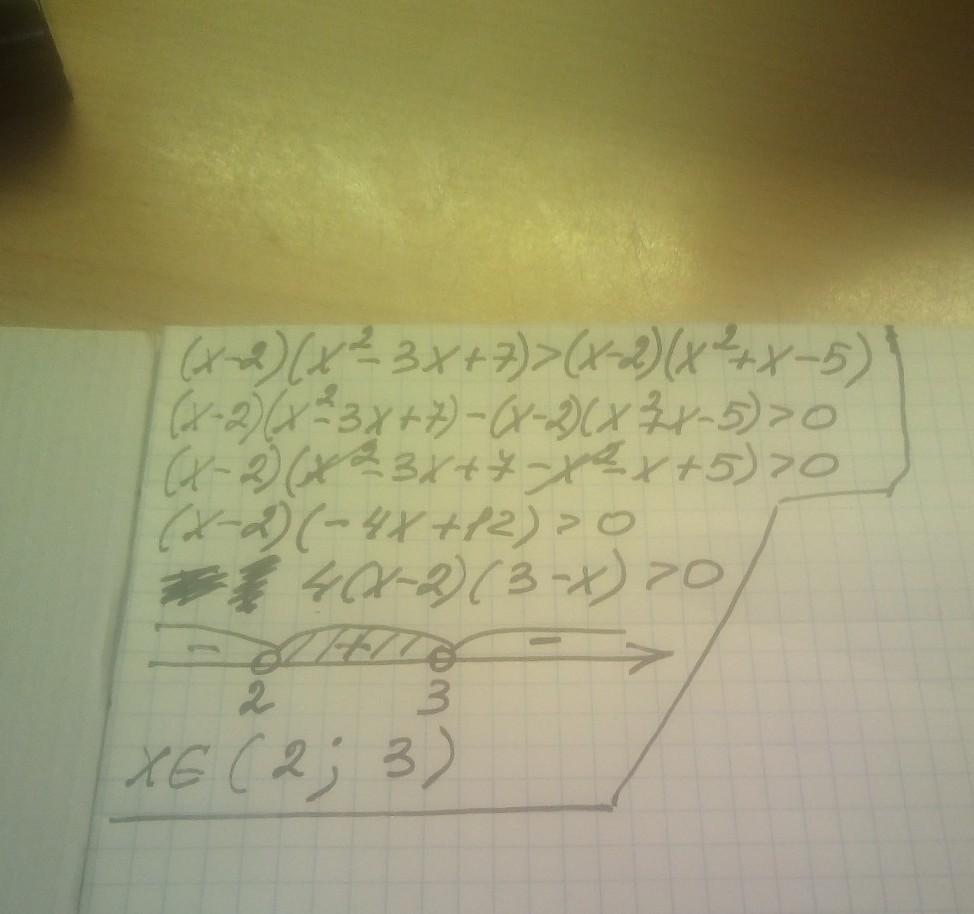 (x-2)(x²-3x+7)>(x-2)(x²+x-5)
(x-2)(x²-3x+7)-(x-2)(x²+x-5)>0
(x-2)(x²-3x+7-x²-x+5)>0
(x-2)(-4x+12)>0
4(x-2)(3-x)>0
- + -
2 3
x∈(2; 3)